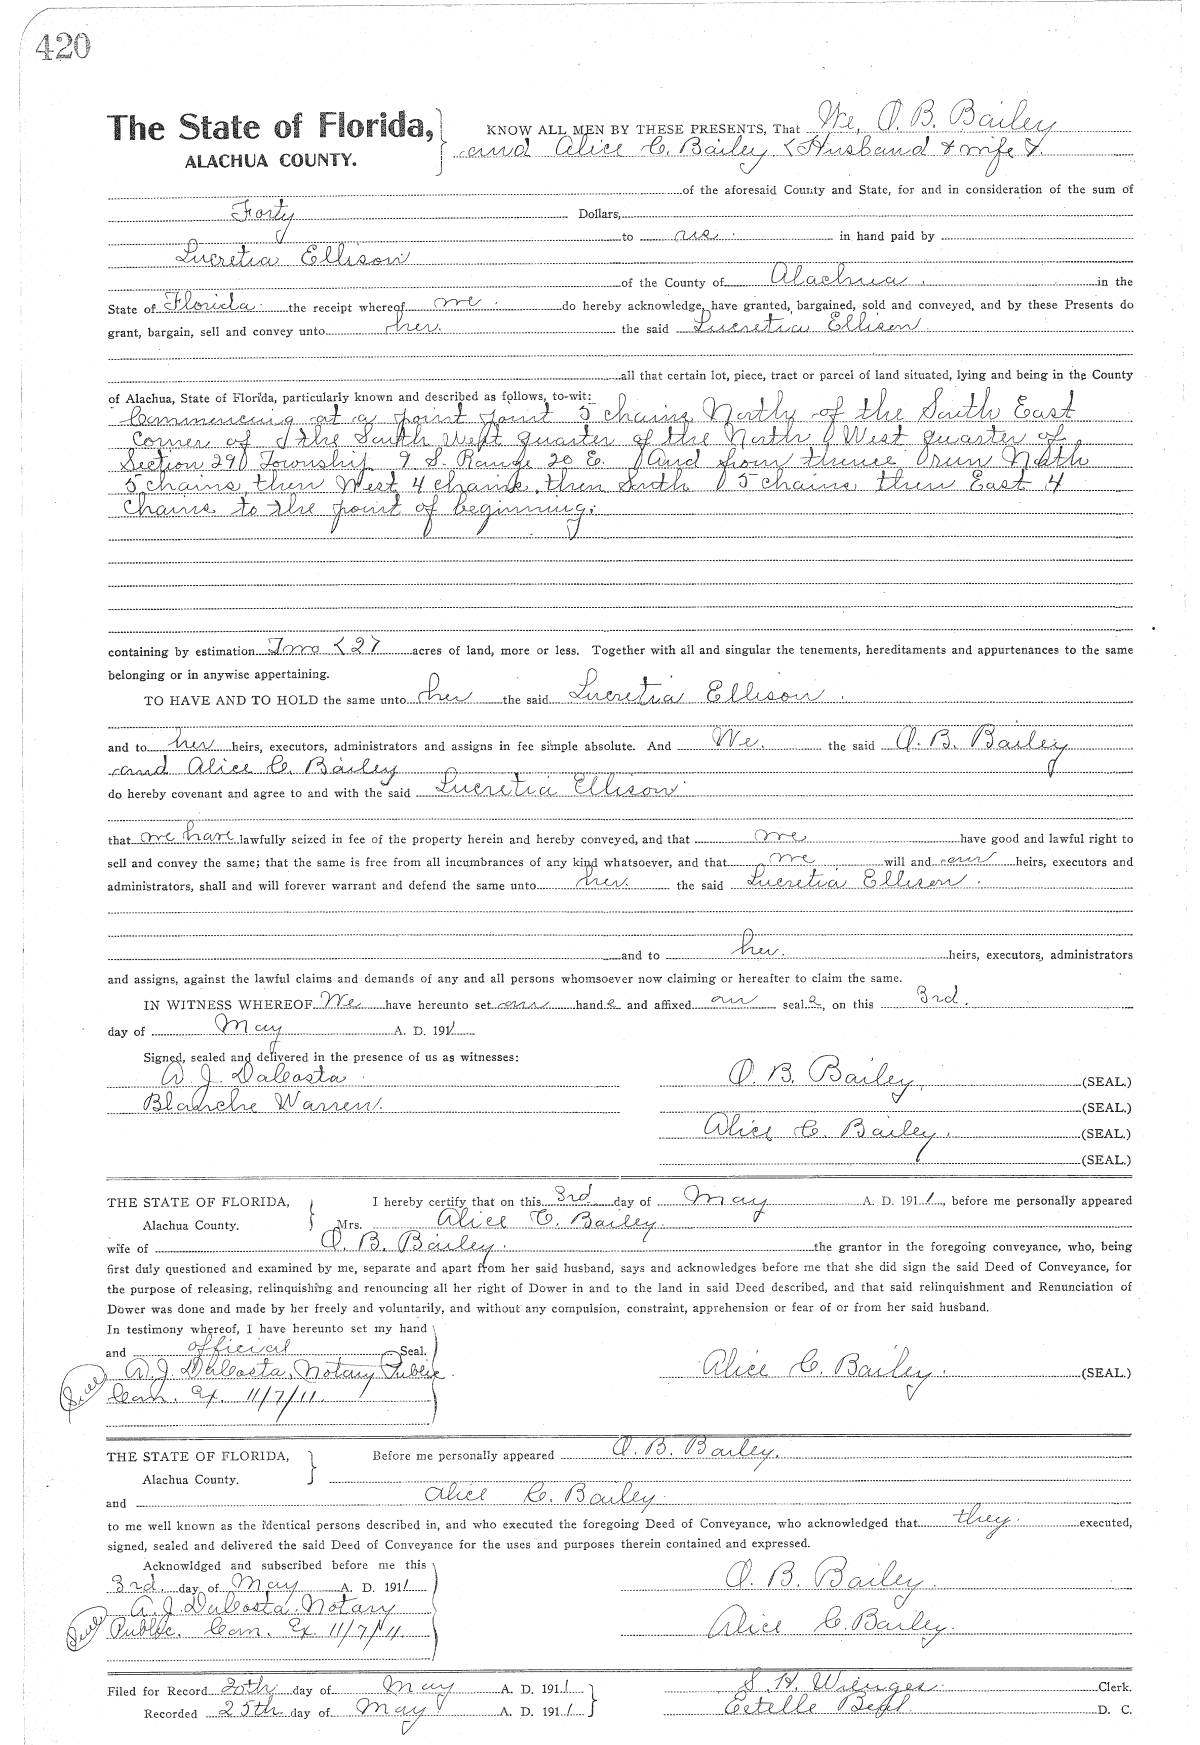 420
The State of Florida, KNOW ALL MEN BY THESE PRESENTS, That We, O. B. Bailey
ALACHUA COUNTY. and Alice C. Bailey (Husband & wife).
of the aforesaid County and State, for and in consideration of the sum of
Forty Dollars,
to us. in hand paid by
Lucretia Ellison
of the County of Alachua. in the
State of Florida. the receipt whereof we. do hereby acknowledge, have granted, bargained, sold and conveyed, and by these Presents do
grant, bargain, sell and convey unto her. the said Lucretia Ellison.
all that certain lot, piece, tract or parcel of land situated, lying and being in the County
of Alachua, State of Florida, particularly known and described as follows, to-wit:
Commencing at a point point 5 chains Northy of the South East
Corner of the South West quarter of the North West quarter of
Section 29 Township 9 S. Range 20 E. And from thence run North
5 chains then West 4 chains, then South 5 chains then East 4
Chains to the point of beginning.
containing by estimation Two (2) acres of land, more or less. Together with all and singular the tenements, hereditaments and appurtenances to the same
belonging or in anywise appertaining.
TO HAVE AND TO HOLD the same unto her the said Lucretia Ellison.
and to her heirs, executors, administrators and assigns in fee simple absolute. And We. the said O. B. Bailey
and Alice C. Bailey
do hereby covenant and agree to and with the said Lucretia Ellison
that we have lawfully seized in fee of the property herein and hereby conveyed, and that we have good and lawful right to
sell and convey the same; that the same is free from all incumbrances of any kind whatsoever, and that we will and our heirs, executors and
administrators, shall and will forever warrant and defend the same unto her. the said Lucretia Ellison.
and to her. heirs, executors, administrators
and assigns, against the lawful claims and demands of any and all persons whomsoever now claiming or hereafter to claim the same.
IN WITNESS WHEREOF We have hereunto set our hands and affixed our seals, on this 3rd.
day of May A. D. 1911
Signed, sealed and delivered in the presence of us as witnesses:
A. J. DaCosta. O. B. Bailey, (SEAL.)
Blanche Warren. (SEAL.)
Alice C. Bailey. (SEAL.)
(SEAL.)
THE STATE OF FLORIDA, I hereby certify that on this 3rd day of May A. D. 1911, before me personally appeared
Alachua County. Mrs. Alice C. Bailey.
wife of O. B. Bailey. the grantor in the foregoing conveyance, who, being
first duly questioned and examined by me, separate and apart from her said husband, says and acknowledges before me that she did sign the said Deed of Conveyance, for
the purpose of releasing, relinquishing and renouncing all her right of Dower in and to the land in said Deed described, and that said relinquishment and Renunciation of
Dower was done and made by her freely and voluntarily, and without any compulsion, constraint, apprehension or fear of or from her said husband.
In testimony whereof, I have hereunto set my hand
and official Seal.
Seal A. J. DaCosta, Notary Public. Alice C. Bailey. (SEAL.)
Com. Ex. 11/7/11.
THE STATE OF FLORIDA, Before me personally appeared O. B. Bailey.
Alachua County.
and Alice C. Bailey.
to me well known as the identical persons described in, and who executed the foregoing Deed of Conveyance, who acknowledged that they. executed,
signed, sealed and delivered the said Deed of Conveyance for the uses and purposes therein contained and expressed.
Acknowldged and subscribed before me this
3rd. day of May A. D. 1911 O. B. Bailey.
A. J. DaCosta. Notary
Seal Public. Com. Ex. 11/7/11. Alice C. Bailey.
Filed for Record 20th day of May A. D. 1911 S. H. Wienges. Clerk.
Recorded 25th day of May A. D. 1911 D. C.